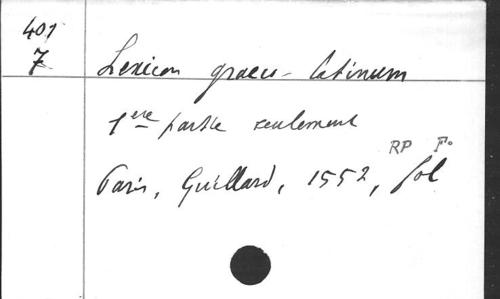 401
7
Lexicon graeco-latinum
1ere partie seulement
RP Fo
Paris, Guillard, 1552, fol